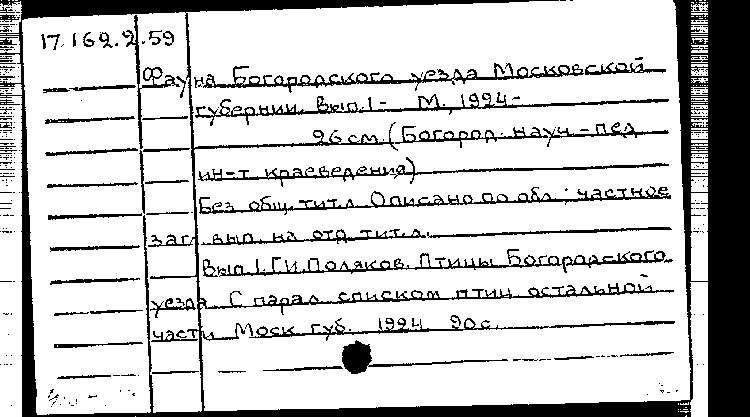 17.162.2.59
Фауна Богородского уезда Московской
губернии. Вып. 1- М., 1924-
26 см. (Богород. науч-пед
ин-т краеведения)
Без общ. тит. л. Описано по обл.; частное
загл. вып. на отд. тит. л.
Вып. 1. Г.И. Поляков. Птицы Богородского
уезда. С парал. списком птиц остальной
части Моск. губ. 1924. 90 с.